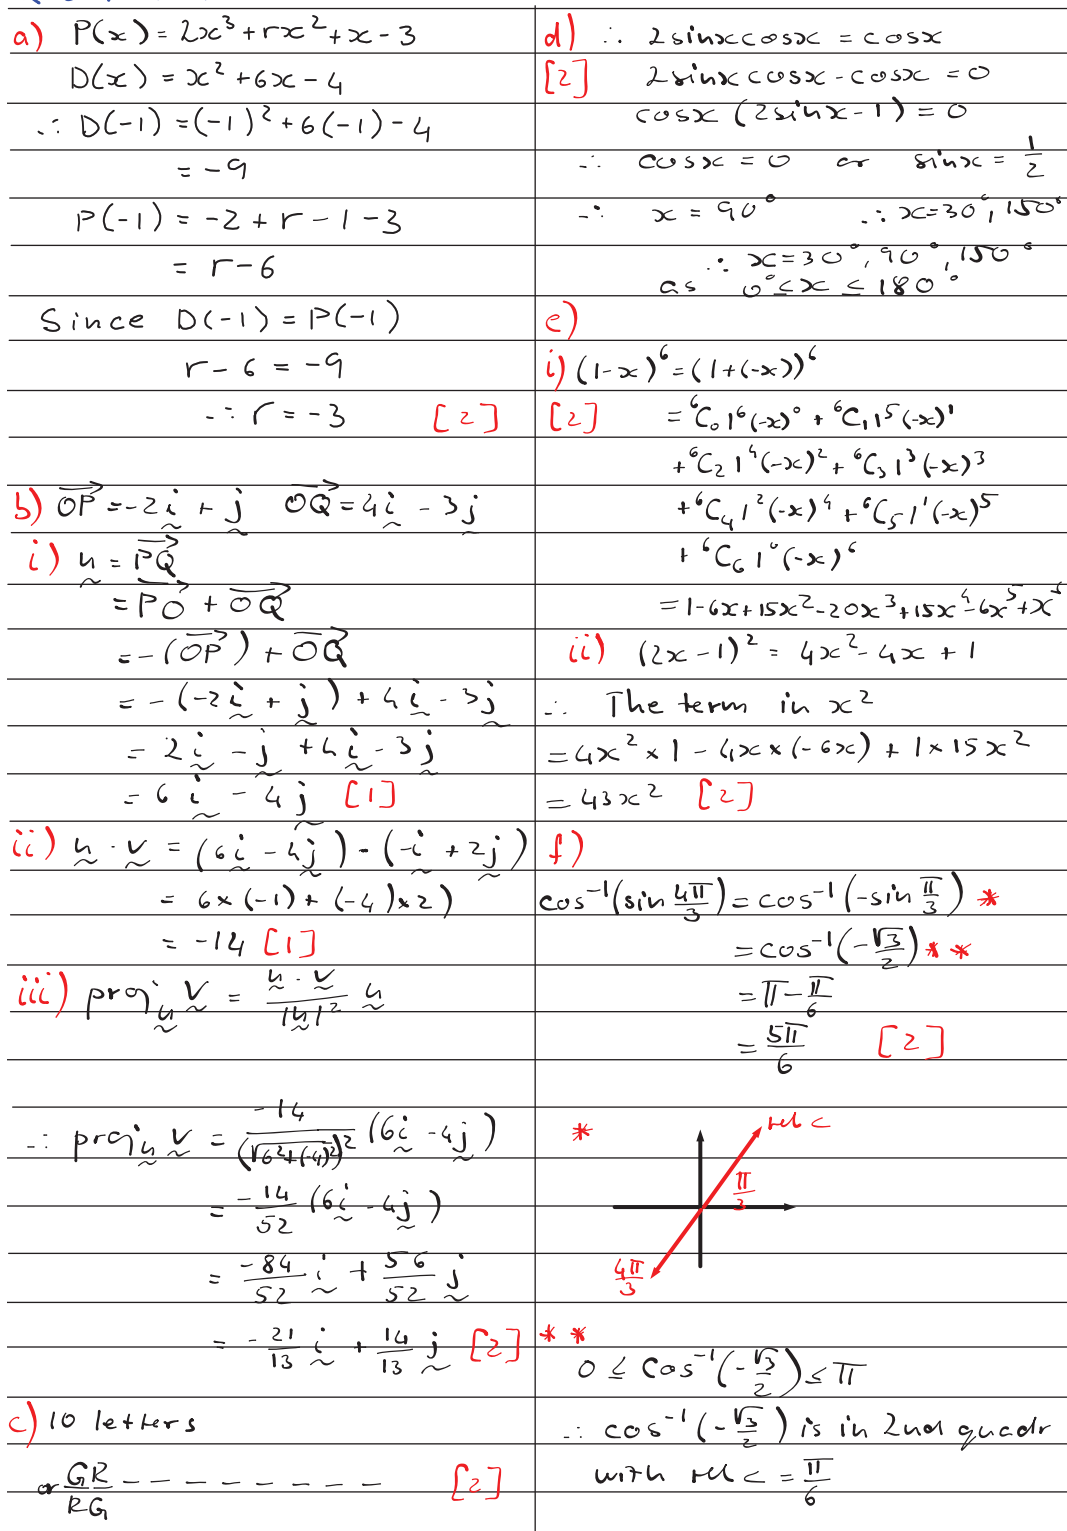 a) P(x) = 2x³ + rx² + x - 3
D(x) = x² + 6x - 4
∴ D(-1) = (-1)² + 6(-1) - 4
= -9
P(-1) = -2 + r - 1 - 3
= r - 6
Since D(-1) = P(-1)
r - 6 = -9
∴ r = -3 [2]
b) OP = -2i + j OQ = 4i - 3j
i) u = PQ
= PO + OQ
= -(OP) + OQ
= -(-2i + j) + 4i - 3j
= 2i - j + 4i - 3j
= 6i - 4j [1]
ii) u · v = (6i - 4j) - (-i + 2j)
= 6×(-1) + (-4)×2)
= -14 [1]
iii) proj_u v = u · v / |u|² u
∴ proj_u v = -14/(√6²+(-4)²)² (6i - 4j)
= -14/52 (6i - 4j)
= -84/52 i + 56/52 j
= -21/13 i + 14/13 j [2]
c) 10 letters
or GR/RG - - - - - - - - [2]
d) ∴ 2sinxcosx = cosx
[2] 2sinxcosx - cosx = 0
cosx (2sinx - 1) = 0
∴ cosx = 0 or sinx = 1/2
∴ x = 90° ∴ x = 30°, 150°
∴ x = 30°, 90°, 150°
as 0° ≤ x ≤ 180°
e)
i) (1-x)⁶ = (1+(-x))⁶
[2] = ⁶C₀ 1⁶(-x)⁰ + ⁶C₁ 1⁵(-x)¹
+ ⁶C₂ 1⁴(-x)² + ⁶C₃ 1³(-x)³
+ ⁶C₄ 1²(-x)⁴ + ⁶C₅ 1¹(-x)⁵
+ ⁶C₆ 1⁰(-x)⁶
= 1-6x+15x²-20x³+15x⁴-6x⁵+x⁶
ii) (2x - 1)² = 4x² - 4x + 1
∴ The term in x²
= 4x² × 1 - 4x × (-6x) + 1 × 15x²
= 43x² [2]
f)
cos⁻¹(sin 4π/3) = cos⁻¹(-sin π/3) *
= cos⁻¹(-√3/2) * *
= π - π/6
= 5π/6 [2]
*
rel <
π/3
4π/3
* *
0 ≤ cos⁻¹(-√3/2) ≤ π
∴ cos⁻¹(-√3/2) is in 2nd quadr
with rel < = π/6